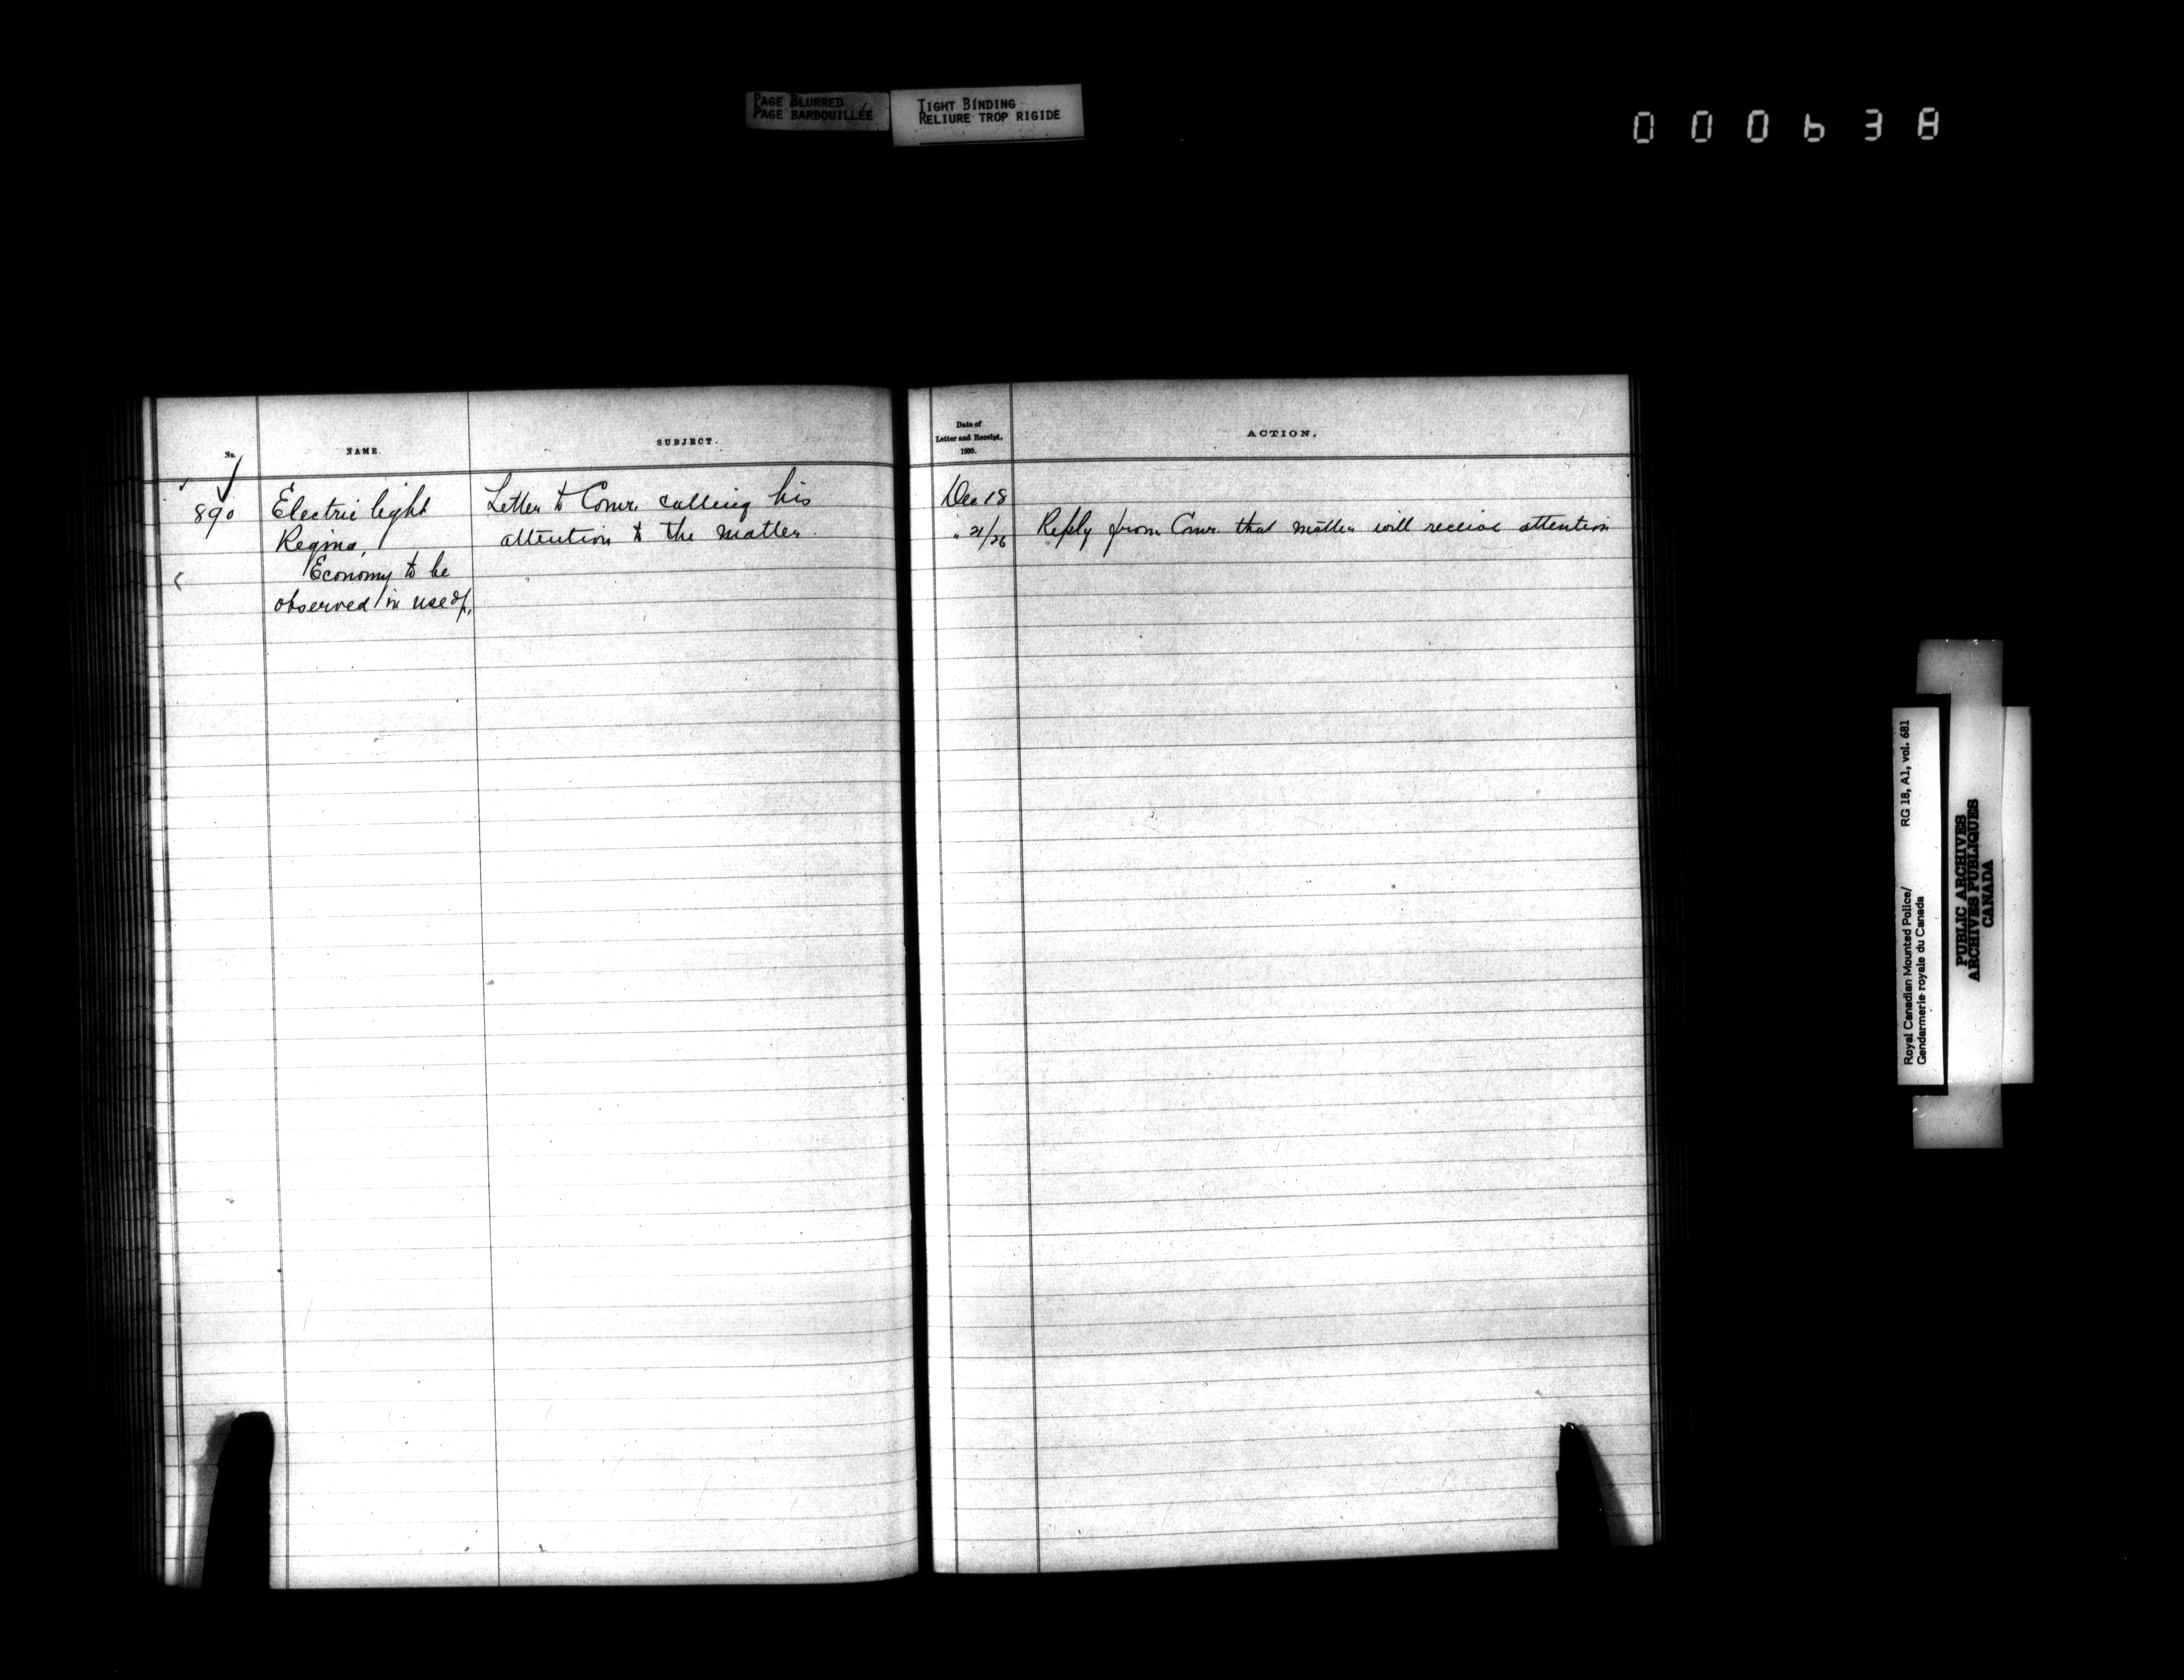 PAGE BLURRED
PAGE BARBOUILLÉE
TIGHT BINDING
RELIURE TROP RIGIDE
000638
No.
NAME.
SUBJECT.
Date of
Letter and Receipt,
1900.
ACTION.
890
Electric light
Regina,
Economy to be
observed in use of,
Letter to Comr. calling his
attention to the matter.
Dec 18
" 21/26
Reply from Comr. that matter will receive attention
Royal Canadian Mounted Police/
Gendarmerie royale du Canada
RG 18, A1, vol. 681
PUBLIC ARCHIVES
ARCHIVES PUBLIQUES
CANADA